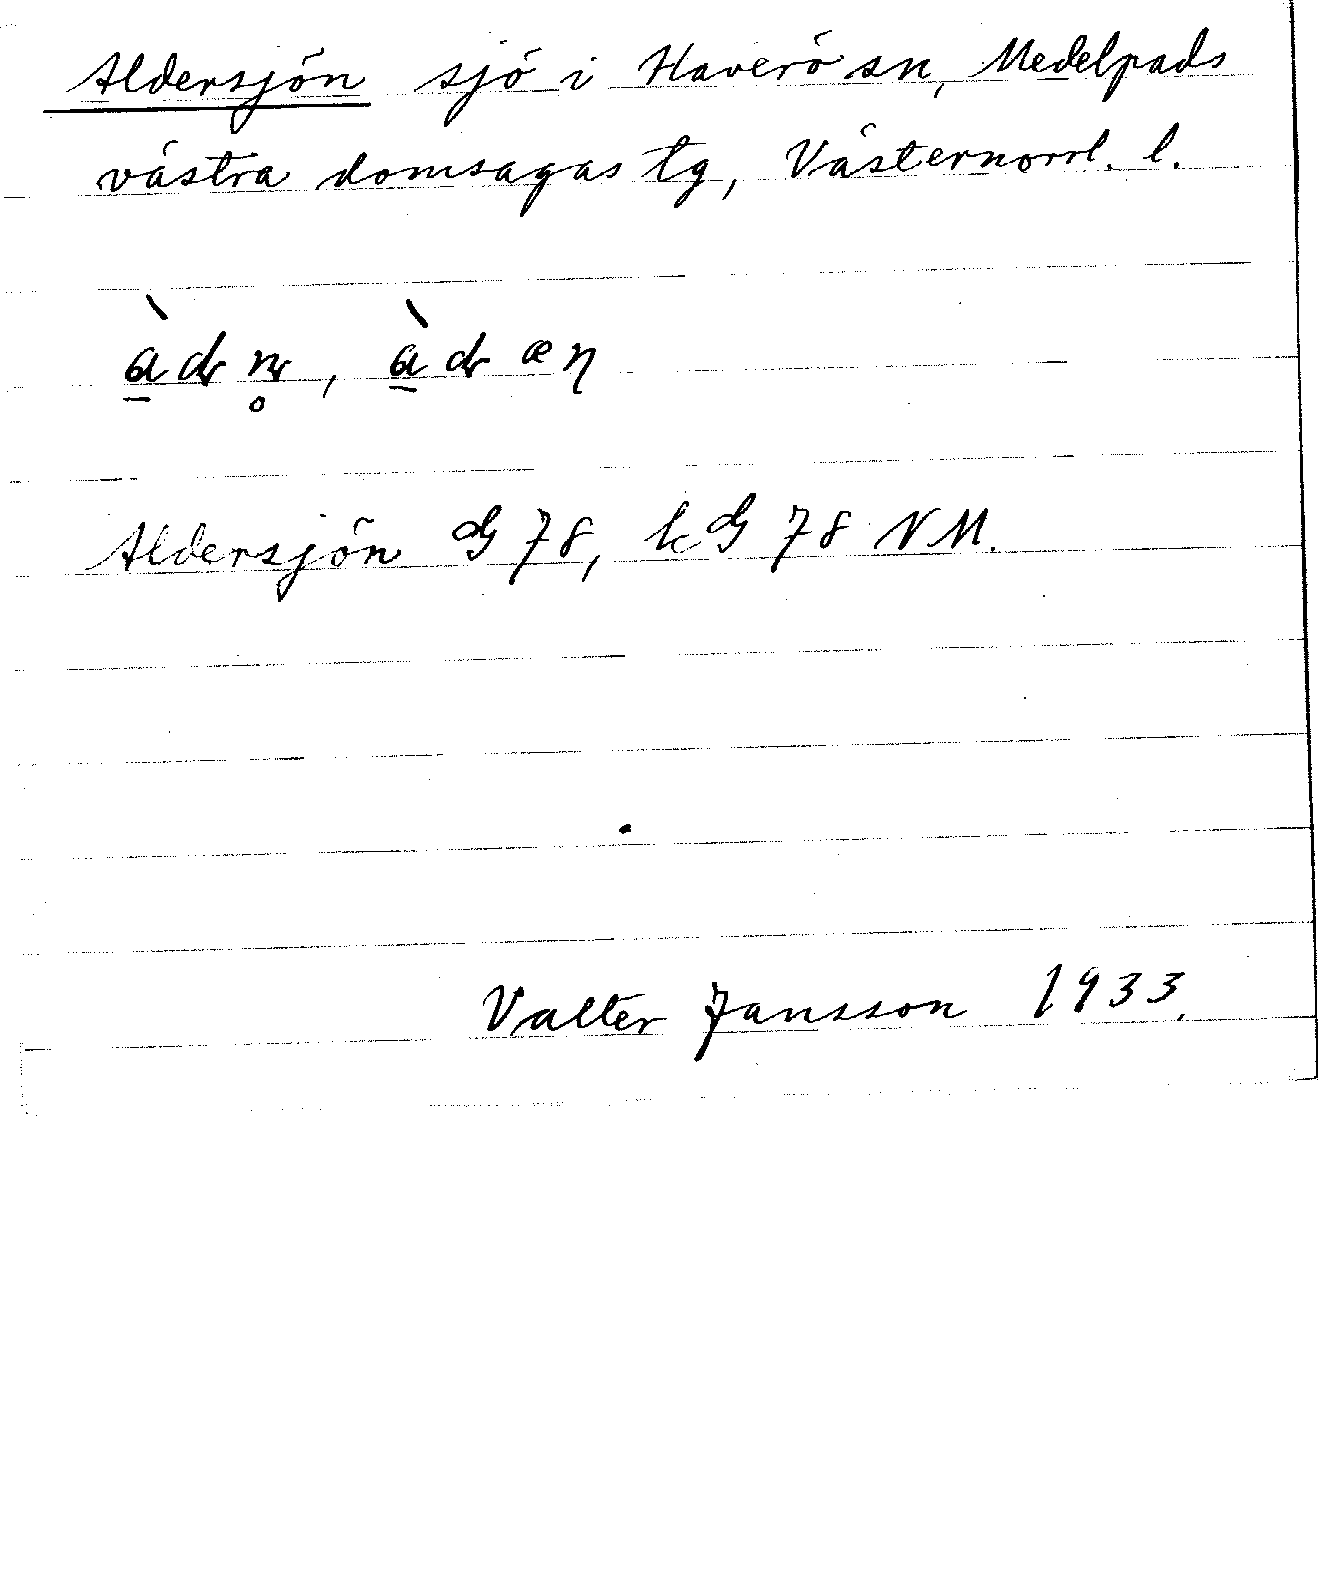 Aldersjön sjö i Haverö sn, Medelpads
västra domsagas tg, Västernorrl. l.
Aldersjön G 78, kG 78 NM.
Valter Jansson 1933.